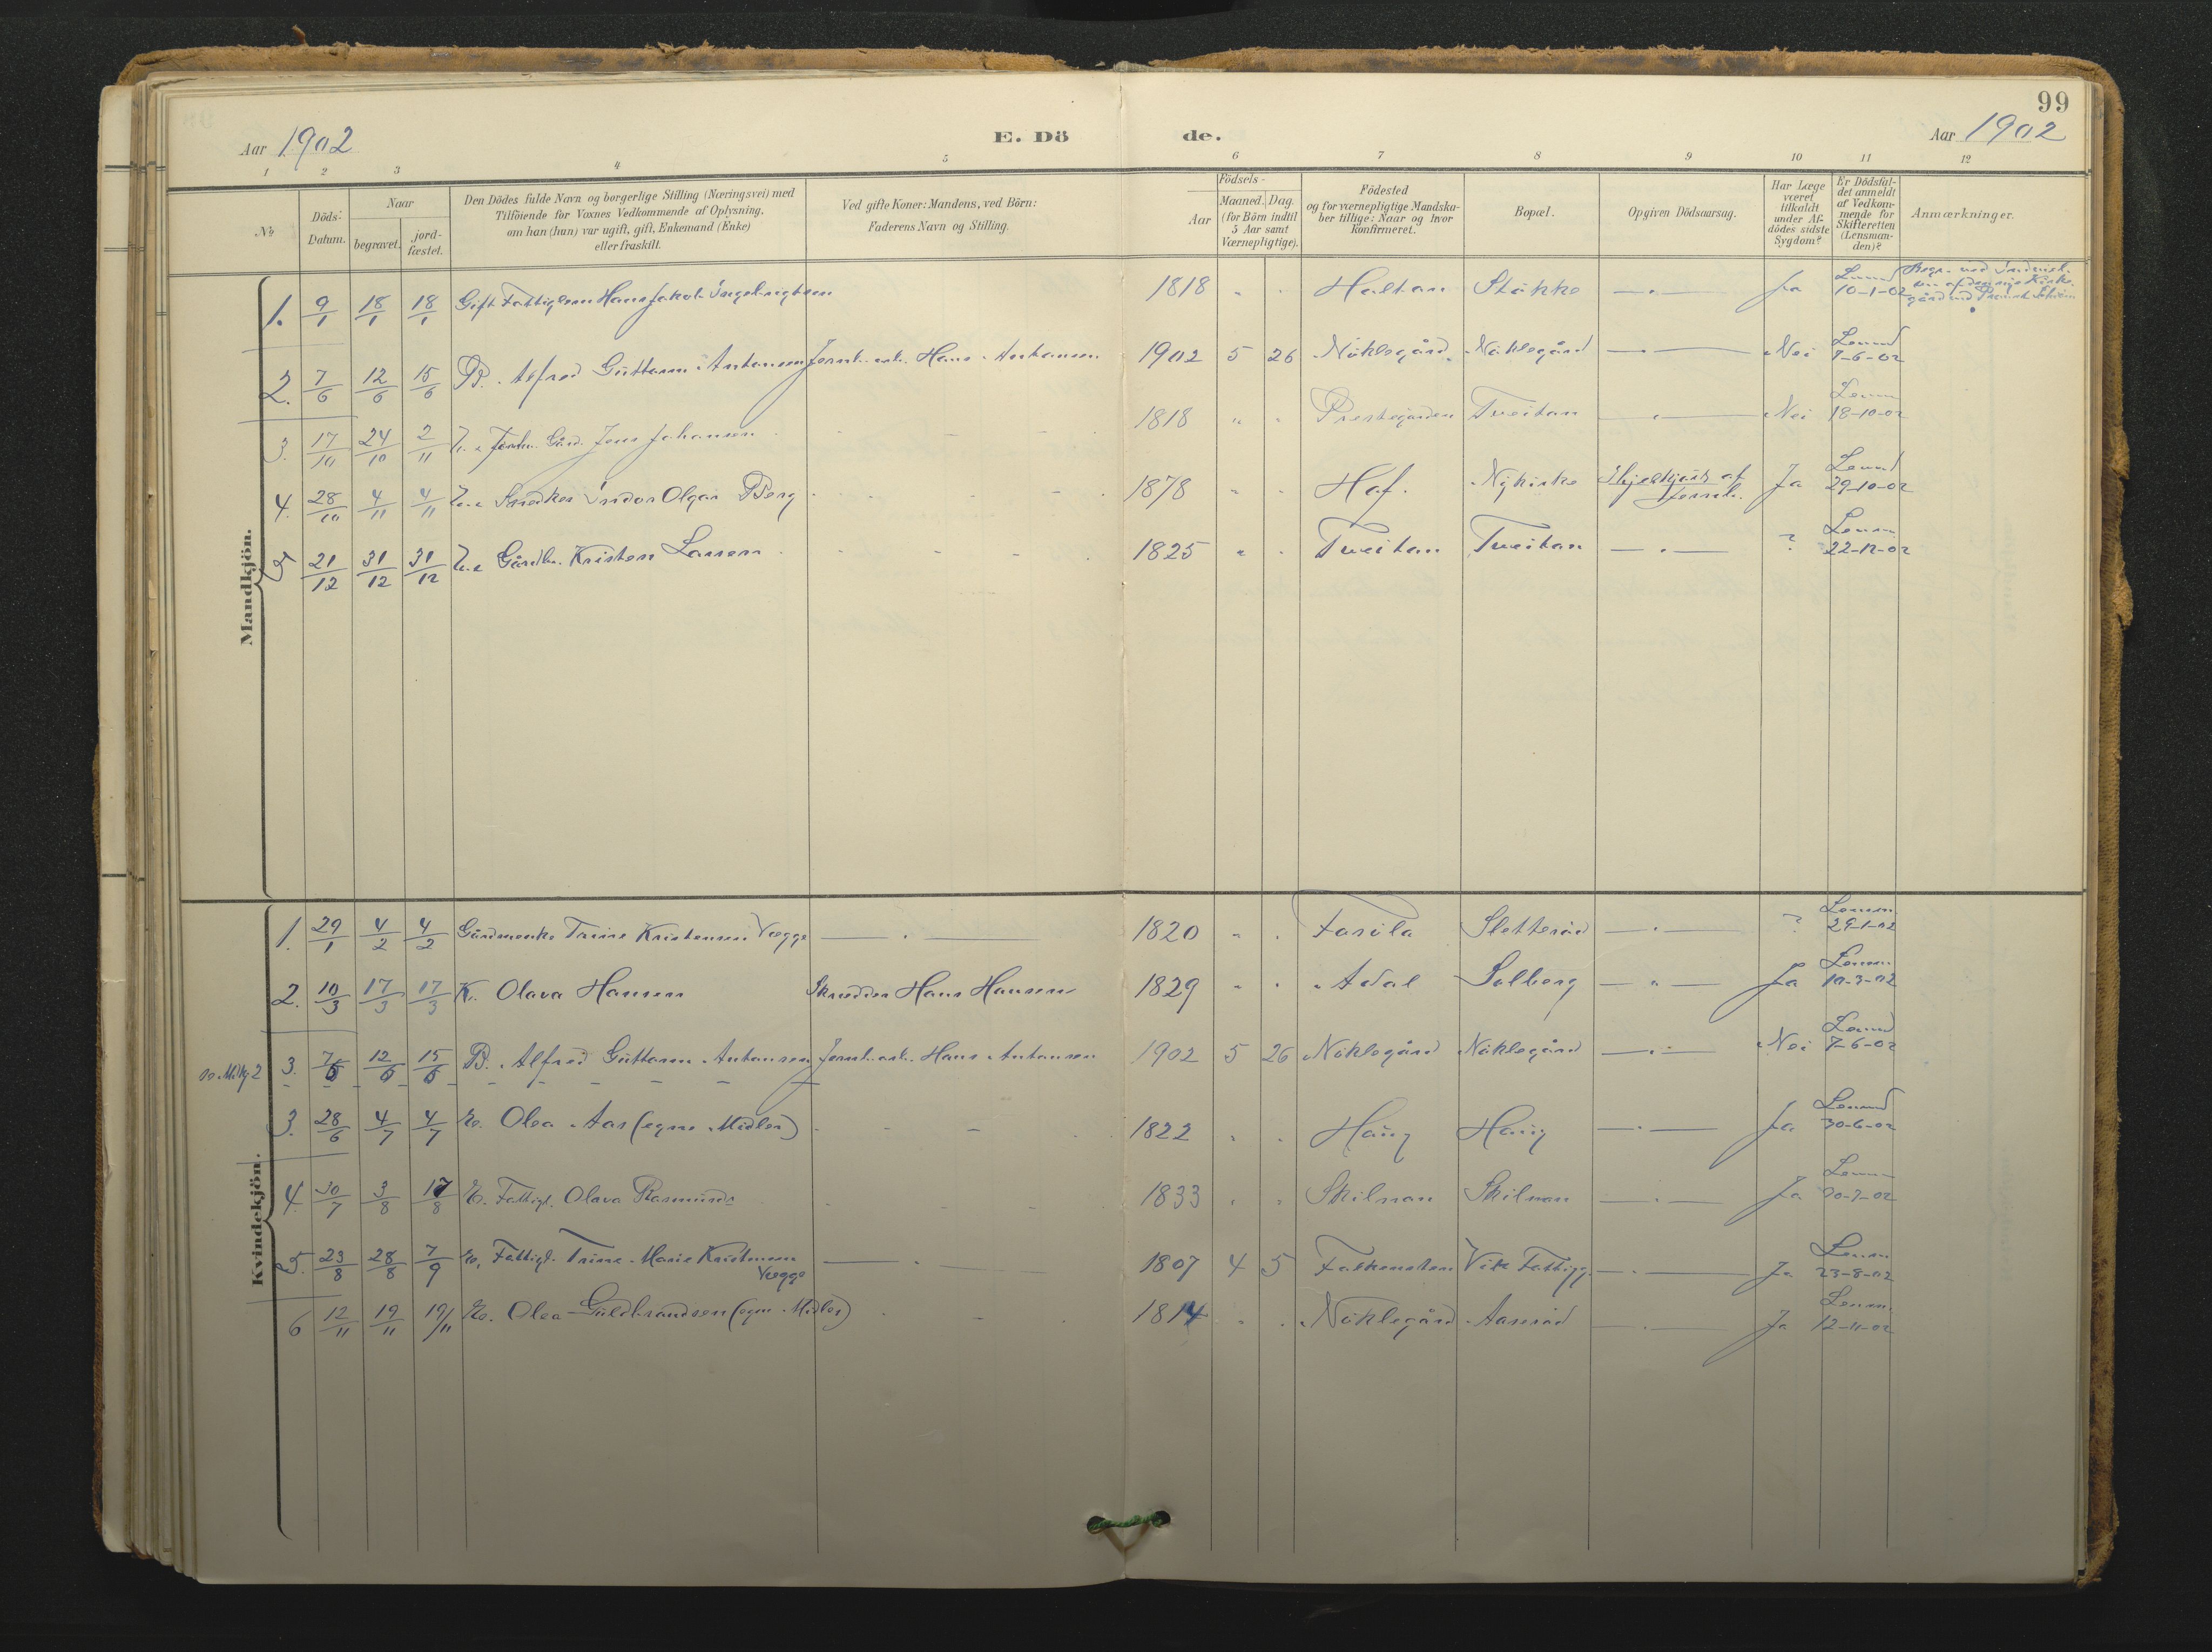 99
Aar 1902
E. Dö de.
Aar 1902
1 2 3 4 5 6 7 8 9 10 11 12
№
Döds-Datum.
Naar
begravet.
jord-fæstet.
Den Dödes fulde Navn og borgerlige Stilling (Næringsvei) med
Tilföiende for Voxnes Vedkommende af Oplysning,
om han (hun) var ugift, gift, Enkemand (Enke)
eller fraskilt.
Ved gifte Koner: Mandens, ved Börn:
Faderens Navn og Stilling.
Födsels-
Aar
Maaned. Dag.
(for Börn indtil
5 Aar samt
Værnepligtige).
Födested
og for værnepligtige Mandska-
ber tillige: Naar og hvor
Konfirmeret.
Bopæl.
Opgiven Dödsaarsag.
Har Læge
været
tilkaldt
under Af-
dödes sidste
Sygdom?
Er Dödsfal-
det anmeldt
af Vedkom-
mende for
Skifteretten
(Lensman-
den)?
Anmærkninger.
Mandkjön.
1. 9/1 18/1 18/1 Gift Fattiglem Hans Jakob 1818 " " Haltan Stokke — " — Ja 10-1-02
2. 7/6 12/6 15/6 B. Alfred Guttorm Antonsen Jernb. arb. Hans Antonsen 1902 5 26 Nöklegård Nöklegård — " — Nei 7-6-02
3. 17/10 24/10 2/11 Gård. Jens Johansen 1818 " " Prestegården Tveitan — " — Nei 18-10-02
4. 28/10 4/11 4/11 Snedker Indor Olgar Berg 1878 " " Hof. Nykirke Ja 29-10-02
5 21/12 31/12 31/12 Gårdbr. Kristen Larsen 1825 " " Tveitan Tveitan — " — ? 22-12-02
Kvindekjön.
1. 29/1 4/2 4/2 Gårdmenke Trine Kristensen Vegge — " — 1820 " " Sletteröd — " — ? 29-1-02
2. 10/3 17/3 17/3 K. Olava Hansen Skredder Hans Hansen 1829 " " Adal Solberg — " — Ja 10-3-02
3. 7/6 12/6 15/6 B. Alfred Guttorm Antonsen Jernb. arb. Hans Antonsen 1902 5 26 Nöklegård Nöklegård — " — Nei 7-6-02
3. 28/6 4/7 4/7 E. Olea Aas (egne Midler) 1822 " " Haug Haug — " — Ja 30-6-02
4. 30/7 3/8 17/8 E. Fattigl. Olava 1833 " " Skilsnan Skilsnan — " — Ja 30-7-02
5. 23/8 28/8 7/9 E. Fattigl. Trine Marie Kristensen Vegge — " — 1807 4 5 Falkensten Vik Fattigg. — " — Ja 23-8-02
6 12/11 19/11 19/11 E. Olea Guldbrandsen (egne Midler) 1814 " " Nöklegård Aasröd — " — Ja 12-11-02